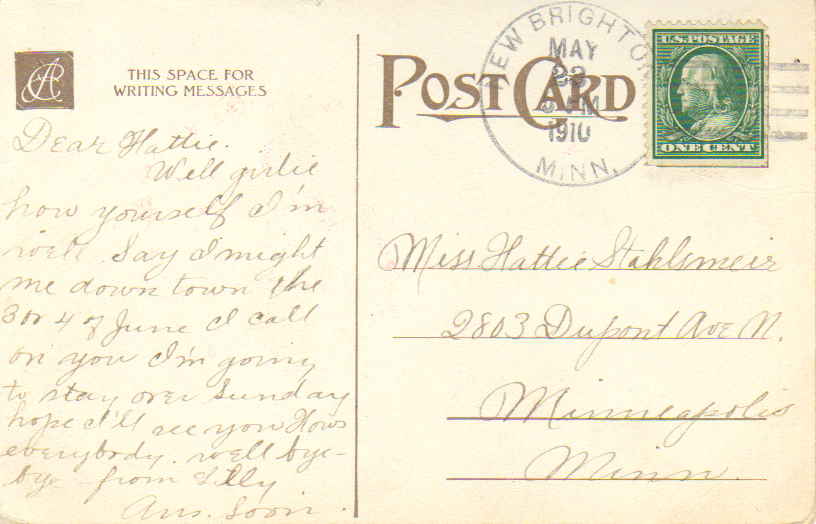 THIS SPACE FOR
WRITING MESSAGES
Dear Hattie.
Well girlie
how yourself I'm
well. Say I might
me down town the
3 or 4 of June I call
on you I'm going
to stay over Sunday
hope I'll see you Hows
everybody. well bye-
bye - from Lilly
Ans. Soon.
POST CARD
NEW BRIGHTON
MAY
23
PM
1910
MINN.
U.S. POSTAGE
ONE CENT
Miss Hattie Stahlsmeir
2803 Dupont Ave N.
Minneapolis
Minn.